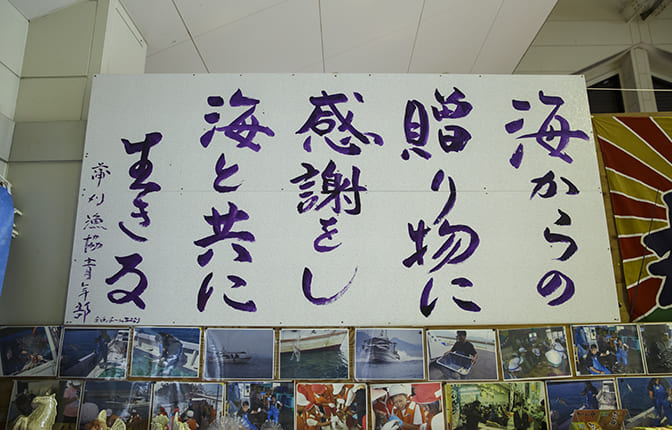 海からの
贈り物に
感謝をし
海と共に
生きる
帝刈漁協青年部